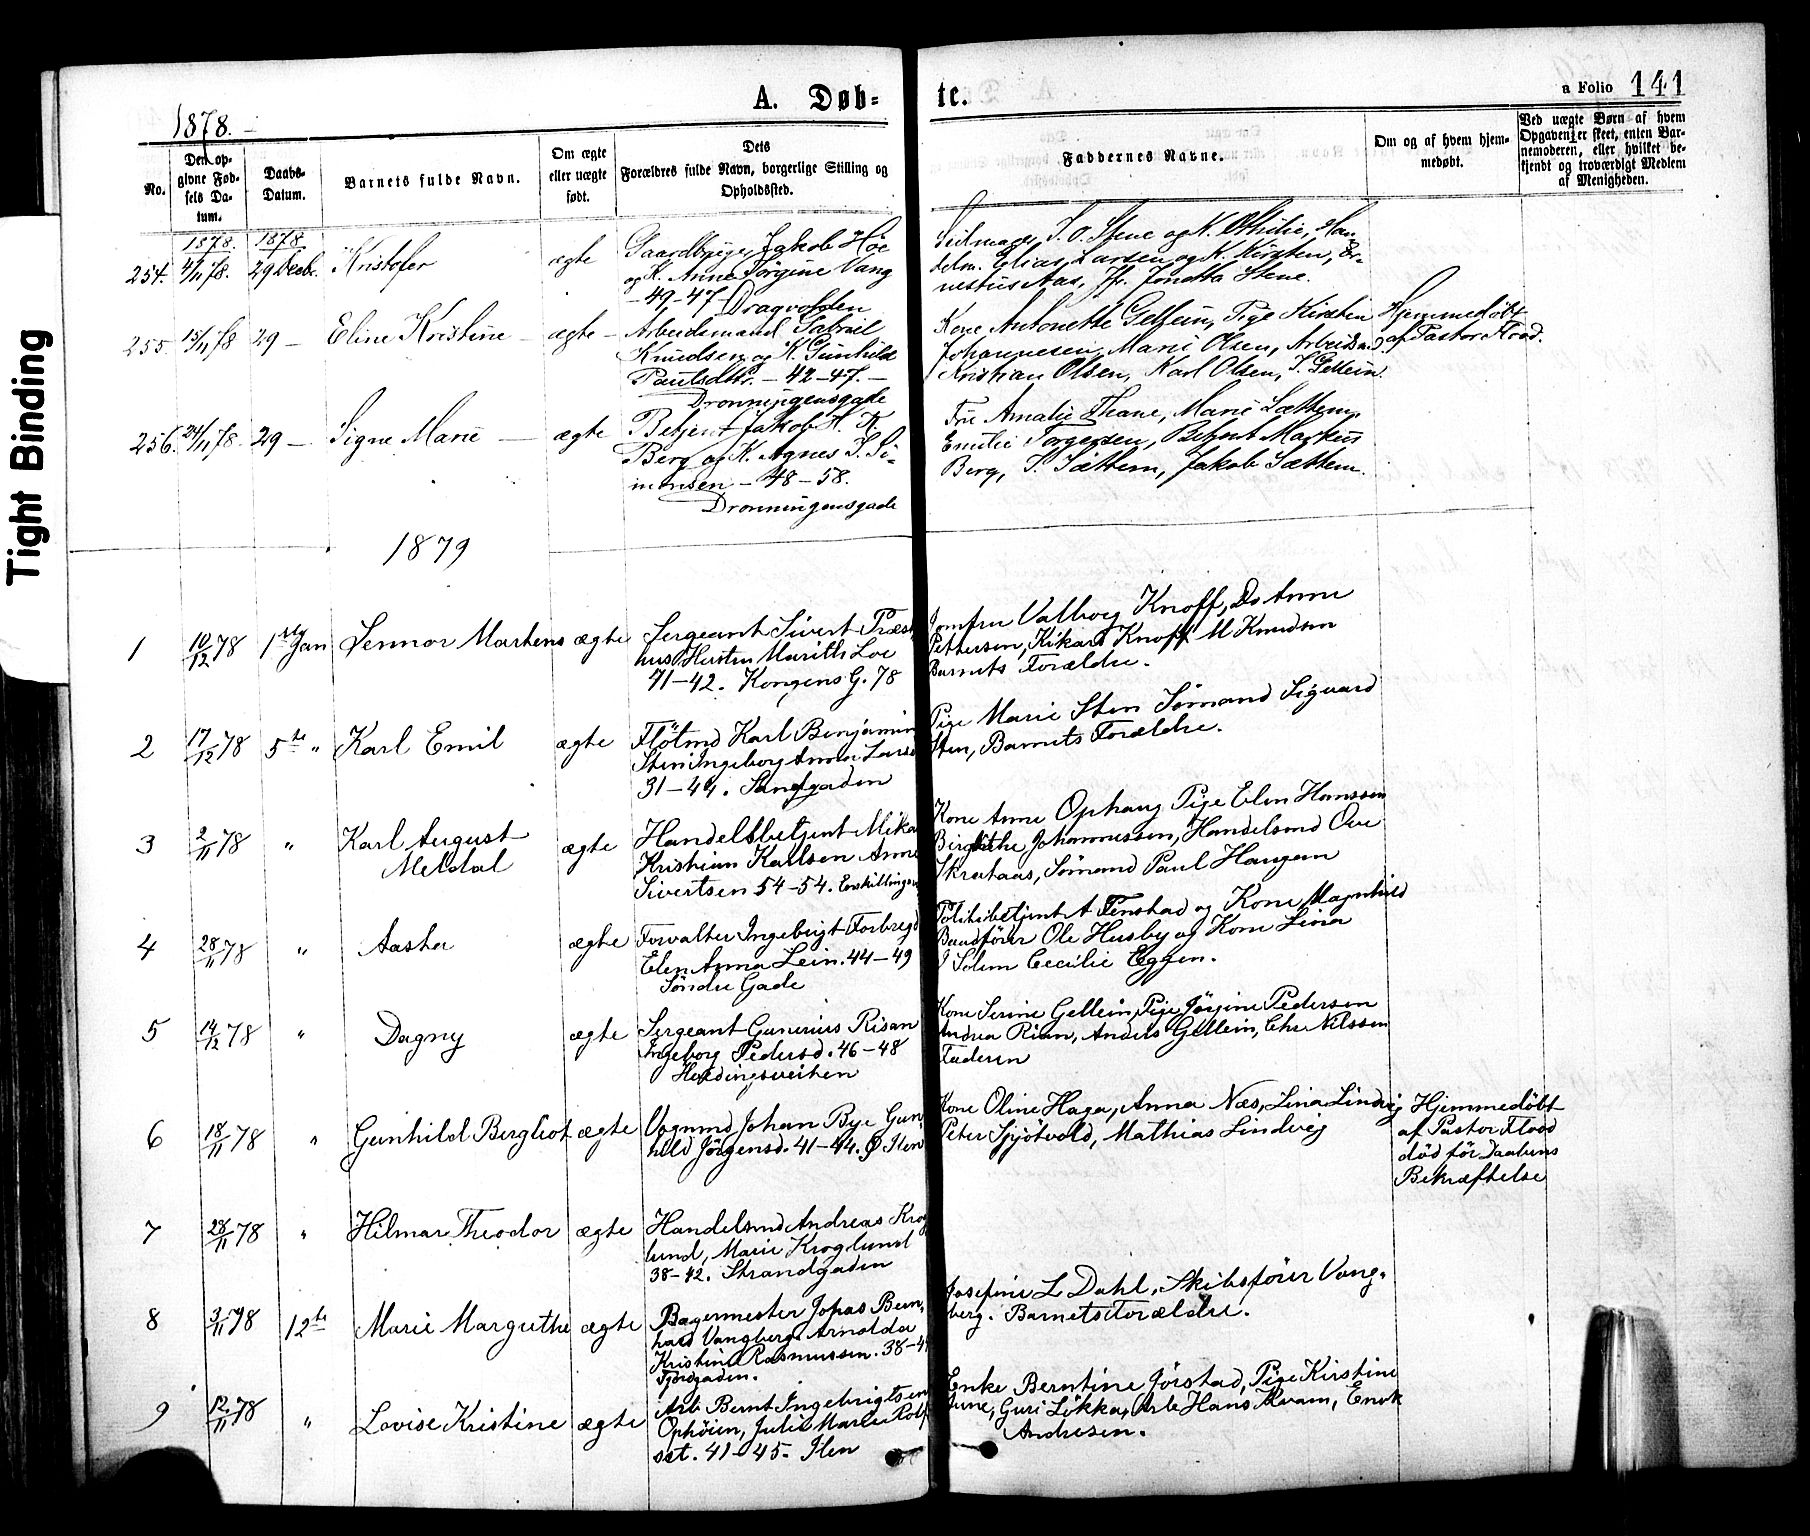 Tight Binding
A. Døb-
te.
a Folio 141
1878.
No.
Den op-
givne Fød-
sels Da-
tum.
Daabs-
Datum.
Barnets fulde Navn.
Om ægte
eller uægte
født.
Dets
Forældres fulde Navn, borgerlige Stilling og
Opholdssted.
Faddernes Navne.
Om og af hvem hjem-
medøbt.
Ved uægte Børn af hvem
Opgaven er skeet, enten Bar-
nemoderen, eller hvilket be-
kjendt og troværdigt Medlem
af Menigheden.
1878. 1878
254. 4/11 78. 29 Decbr. Kristofer ægte
Gaardbruger Jakob Høe
og K. Anne Jørgine Vang
- 49-47- Dragvolden
Seilmager J. O. Stene og K. Othilie, Han-
delsm. Elias Larsen og K. Kirsten, Er-
nestus Aas, Jfr. Jonetta Stene.
255. 15/11 78 29 - Eline Kristine - ægte -
Arbeidsmand Gabriel
Knudsen og K. Gunhild
Paulsdttr. - 42-47. -
Dronningensgade
Kone Antonette Gellein, Pige Kirsten
Johannesen, Marie Olsen, Arbeidsmd.
Kristian Olsen, Karl Olsen, J. Gellein.
Hjemmedøbt
af Pastor Flood.
256. 24/11 78. 29 - Signe Marie - ægte
Betjent Jakob H. K.
Berg og K. Agnes S. Si-
monsen - 48-58.
Dronningensgade
Fru Amalie Thane, Marie Sættem,
Emilie Torgersen, Betjent Markus
Berg, S. Sættem, Jakob Sættem.
1879
1 10/12 78 1ste Jan Lennor Martens ægte
Sergeant Sivert Præst-
hus Hustru Marith Loe
71-42. Kongens G. 78
Jomfru Valborg Knoff, Do Anne
Pettersen, Rikard Knoff M Knudsen
Barnets Forældre.
2 17/12 78 5te " Karl Emil ægte
Fløtmd Karl Benjamin
Sten Ingeborg Anna Lars
31-44. Sandgaden
Pige Marie Sten Sømand Siguard
Sten, Barnets Forældre.
3 2/11 78 " Karl August
Meldal ægte
Handelsbetjent Mikal
Kristian Karlsen Anne
Sivertsen 54-54. Enskillingen
Kone Anne Ophaug Pige Elen Hanssen
Birgitthe Johannessen, Handelsmd Ove
Skrataas, Sømand Paul Haugen
4 28/11 78 " Aasta ægte
Forvalter Ingebrigt Forbregd
Elen Anna Lein. 44-49
Søndre Gade
Politibetjent A Fenstad og Kone Magnhild
Baadfører Ole Husby og Kone Lina
J Solem Cecilie Eggen.
5 14/12 78 " Dagny ægte
Sergeant Gunerius Risan
Ingeborg Pedersd. 46-48
Hordingsveiten
Kone Serine Gellein, Pige Jørgine Pedersen
Andrea Rian, Anders Gellein, Chr Nilssen
Faderen
6 18/11 78 " Gunhild Bergliot ægte
Vognmd Johan Bye Gun-
hild Jørgensd. 41-44. Ø Ilen
Kone Oline Haga, Anna Næs, Lina Lindvig
Peter Sjøtvold, Mathias Lindvig
Hjemmedøbt
af Pastor Flood
død før Daabens
Bekræftelse
7 28/11 78 " Hilmar Theodor ægte
Handelsmd Andreas Krog
lund, Marie Kroglund
38-42. Strandgaden
8 3/11 78 12te Marie Margrethe ægte
Bagermester Jonas Bern-
hard Vangberg Arnolda
Kristine Rasmussen. 38-4
Fjordgaden.
Josefine L Dahl, Skibsfører Vang-
berg. Barnets Forældre.
9 12/11 78 " Lovise Kristine ægte
Arb Bernt Ingebrigtsen
Ophøien, Julie Marie Rolf
set. 41-45. Ilen
Enke Berntine Jørstad, Pige Kirstine
June, Guri Løkka, Arb Hans Kvam, Enok
Andresen.